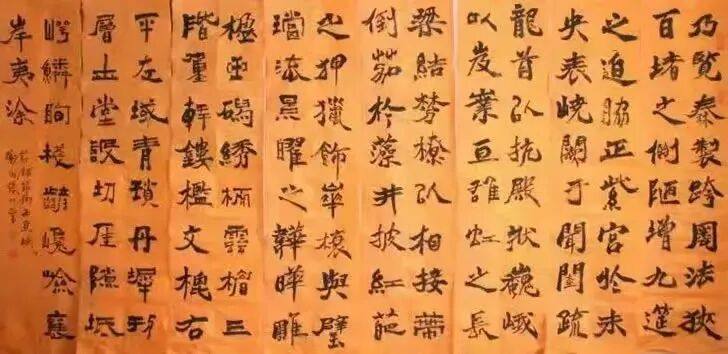 乃覽秦製跨周法狹
百堵之側陋增九筵
之迫脅正紫宮於未
央表嶢闕于閶闔疏
龍首以抗殿狀巍峨
以岌嶪亘雄虹之長
梁結棼橑以相接蔕
倒茄於藻井披紅葩
之狎獵飾華榱與璧
璫流景曜之韡曄雕
楹玉磶繡栭雲楣三
階重軒鏤檻文㮰右
平左墄青瑣丹墀刊
層堂設切厓隒坻
崿鱗眴棧齴巉嶮襄
岸夷涂